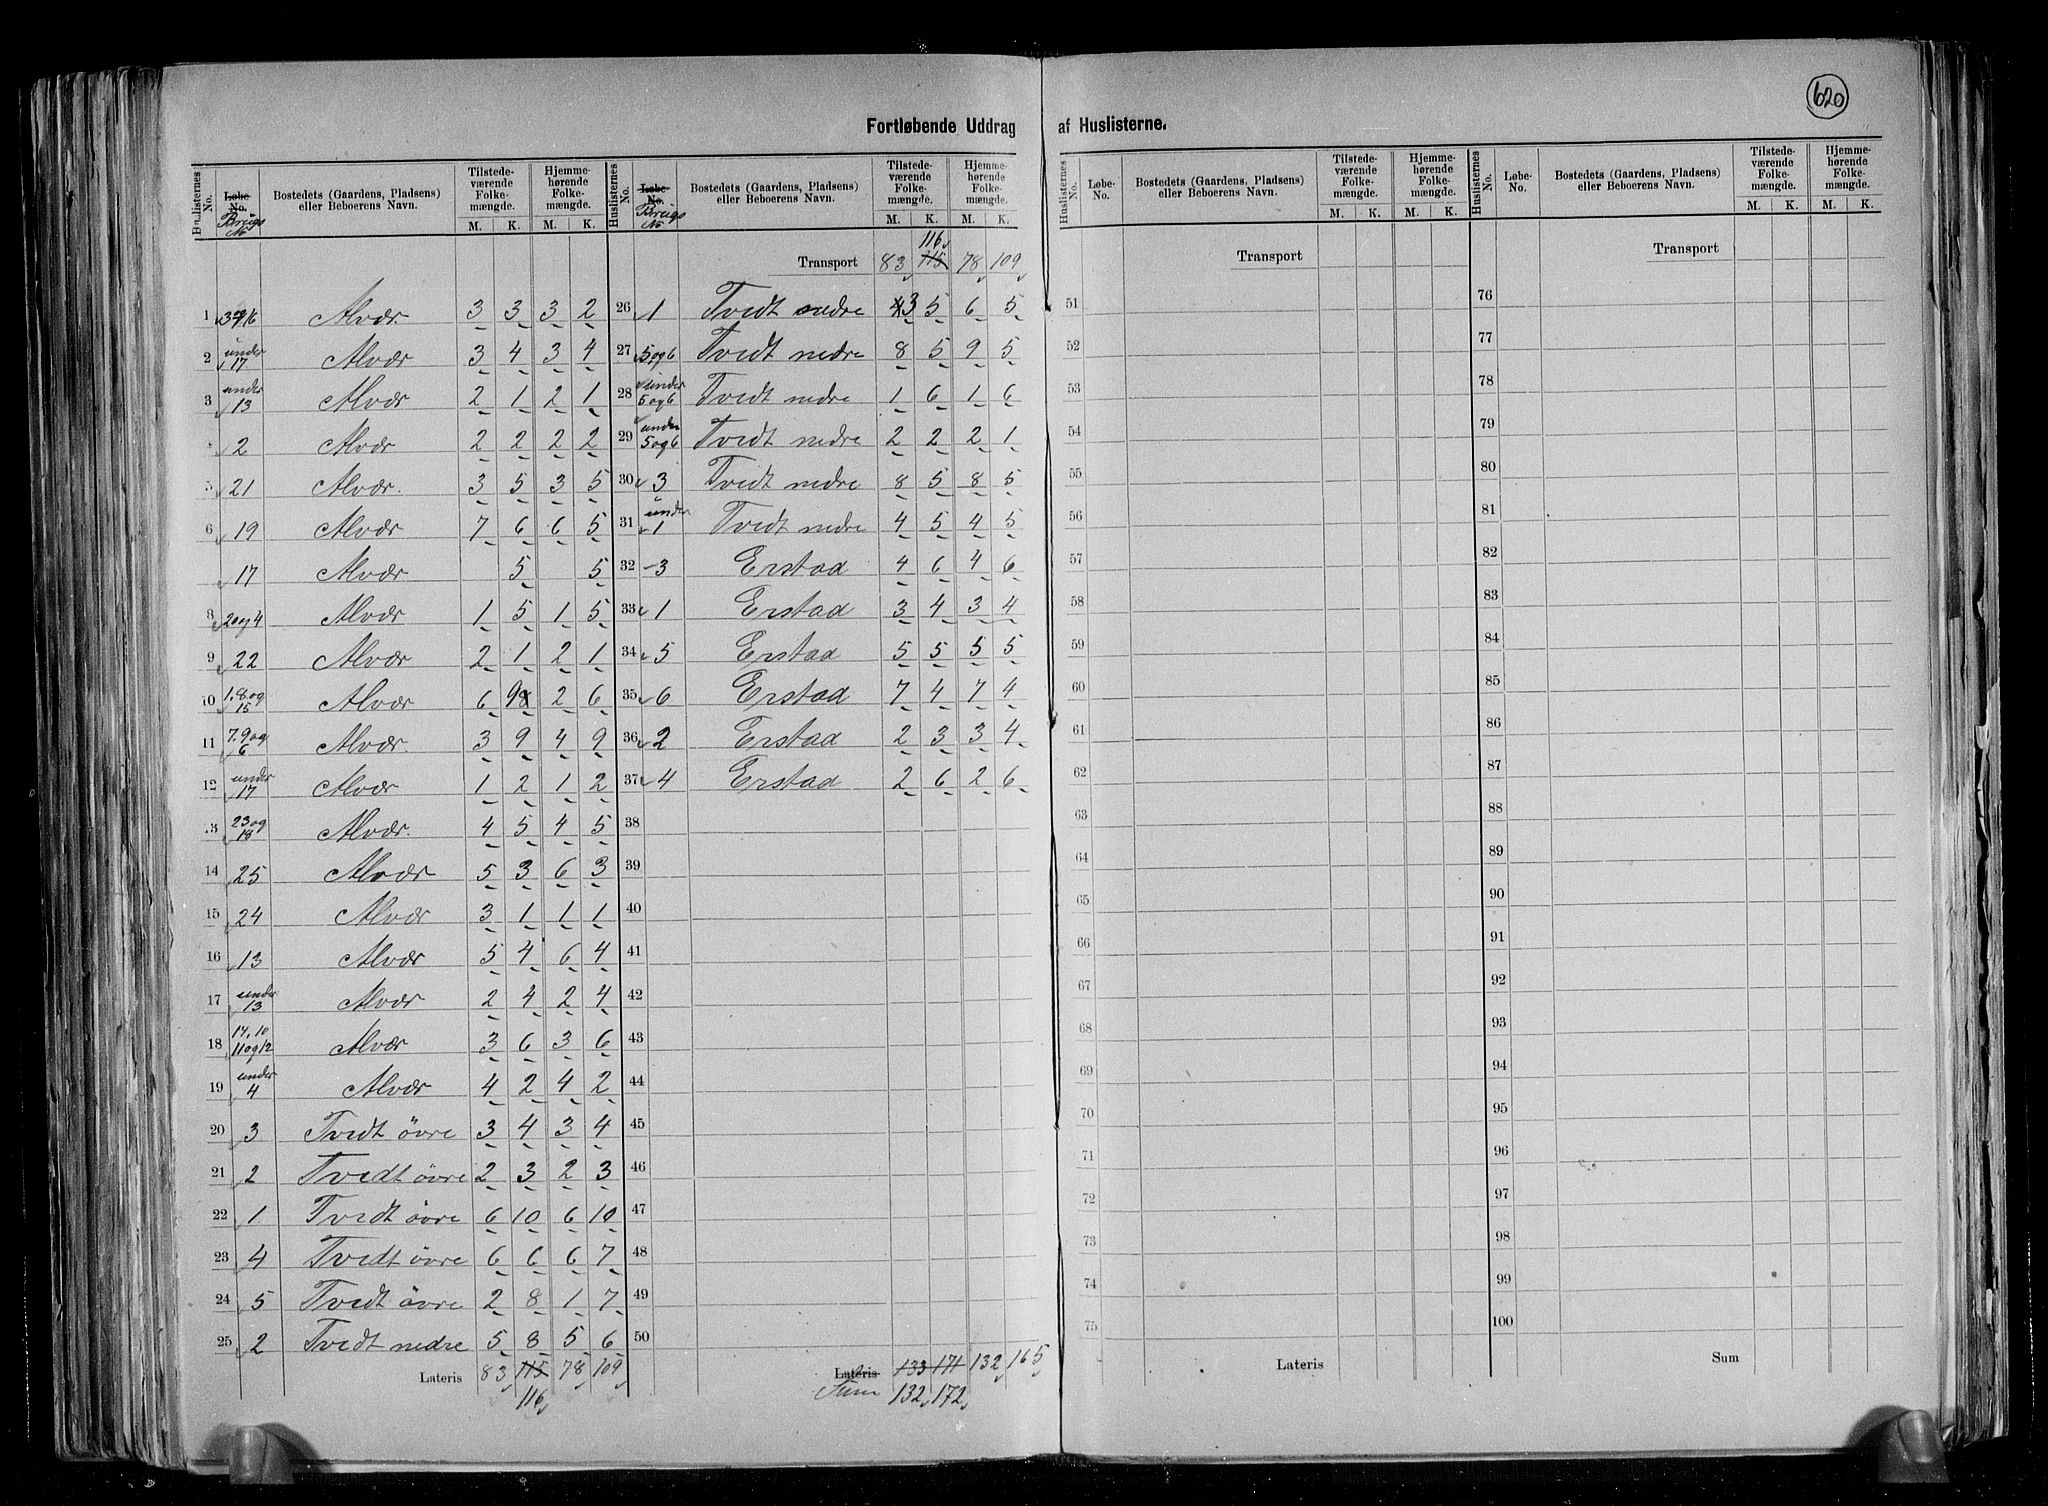 620
Fortløbende Uddrag af Huslisterne.
Huslisternes No. | Løbe-No. Brugs No | Bostedets (Gaardens, Pladsens) eller Beboerens Navn. | Tilstedeværende Folkemængde. M. K. | Hjemmehørende Folkemængde. M. K.
1 | Alvær. | 3 | 3 | 3 | 2
2 | under 17 | Alvær | 3 | 4 | 3 | 4
3 | under 13 | Alvær | 2 | 1 | 2 | 1
2 | Alvær | 2 | 2 | 2 | 2
5 | 21 | Alvær. | 3 | 5 | 3 | 5
6 | 19 | Alvær | 7 | 6 | 6 | 5
17 | Alvær | 5 | 5
8 | 2 og 4 | Alvær | 1 | 5 | 1 | 5
9 | 22 | Alvær | 2 | 1 | 2 | 1
10 | 1.8 og 15 | Alvær | 6 | 9 | 2 | 6
11 | 7.9 og 6 | Alvær. | 3 | 9 | 4 | 9
12 | under 17 | Alvær | 1 | 2 | 1 | 2
13 | 23 og 18 | Alvær. | 4 | 5 | 4 | 5
14 | 25 | Alvær | 5 | 3 | 6 | 3
15 | 24 | Alvær | 3 | 1 | 1 | 1
16 | 13 | Alvær | 5 | 4 | 6 | 4
17 | under 13 | Alvær | 2 | 4 | 2 | 4
18 | 14, 10 11 og 12 | Alvær | 3 | 6 | 3 | 6
19 | under 4 | Alvær | 4 | 2 | 4 | 2
20 | 3 | Tvedt övre | 3 | 4 | 3 | 4
21 | 2 | Tvedt övre | 2 | 3 | 2 | 3
22 | 1 | Tvedt övre | 6 | 10 | 6 | 10
23 | 4 | Tvedt övre | 6 | 6 | 6 | 7
24 | 5 | Tvedt övre | 2 | 8 | 1 | 7
25 | 2 | Tvedt nedre | 5 | 8 | 5 | 6
Lateris | 83 | 115 | 78 | 109
116
Huslisternes No. | Løbe-No. Brugs No | Bostedets (Gaardens, Pladsens) eller Beboerens Navn. | Tilstedeværende Folkemængde. M. K. | Hjemmehørende Folkemængde. M. K.
116
Transport | 83 | 115 | 78 | 109
26 | 1 | Tvedt nedre | 4 3 | 5 | 6 | 5
27 | 5 og 6 | Tvedt nedre | 8 | 5 | 9 | 5
28 | under 5 og 6 | Tvedt nedre | 1 | 6 | 1 | 6
29 | under 5 og 6 | Tvedt nedre | 2 | 2 | 2 | 1
30 | 3 | Tvedt nedre | 8 | 5 | 8 | 5
31 | under 1 | Tvedt nedre | 4 | 5 | 4 | 5
32 | 3 | Erstad | 4 | 6 | 4 | 6
33 | 1 | Erstad | 3 | 4 | 3 | 4
34 | 5 | Erstad | 5 | 5 | 5 | 5
35 | 6 | Erstad | 7 | 4 | 7 | 4
36 | 2 | Erstad | 2 | 3 | 3 | 4
37 | 4 | Erstad | 2 | 6 | 2 | 6
38
39
40
41
42
43
44
45
46
47
48
49
50
Lateris | 133 | 171 | 132 | 165
Sum | 132 | 172
Huslisternes No. | Løbe-No. | Bostedets (Gaardens, Pladsens) eller Beboerens Navn. | Tilstedeværende Folkemængde. M. K. | Hjemmehørende Folkemængde. M. K.
Transport
51
52
53
54
55
56
57
58
59
60
61
62
63
64
65
66
67
68
69
70
71
72
73
74
75
Lateris
Huslisternes No. | Løbe-No. | Bostedets (Gaardens, Pladsens) eller Beboerens Navn. | Tilstedeværende Folkemængde. M. K. | Hjemmehørende Folkemængde. M. K.
Transport
76
77
78
79
80
81
82
83
84
85
86
87
88
89
90
91
92
93
94
95
96
97
98
99
100
Sum